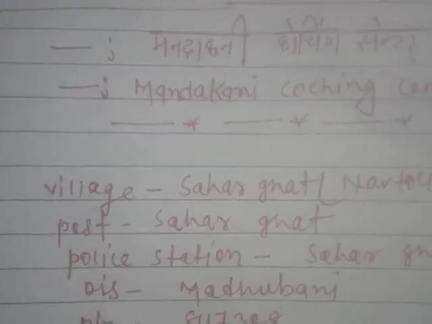 — ; मन्दाकनी कोचिंग
—; Mandakani caching
village - Sahar ghat (
post - Sahar ghat
police station - Sahar
Dis - Madhubani